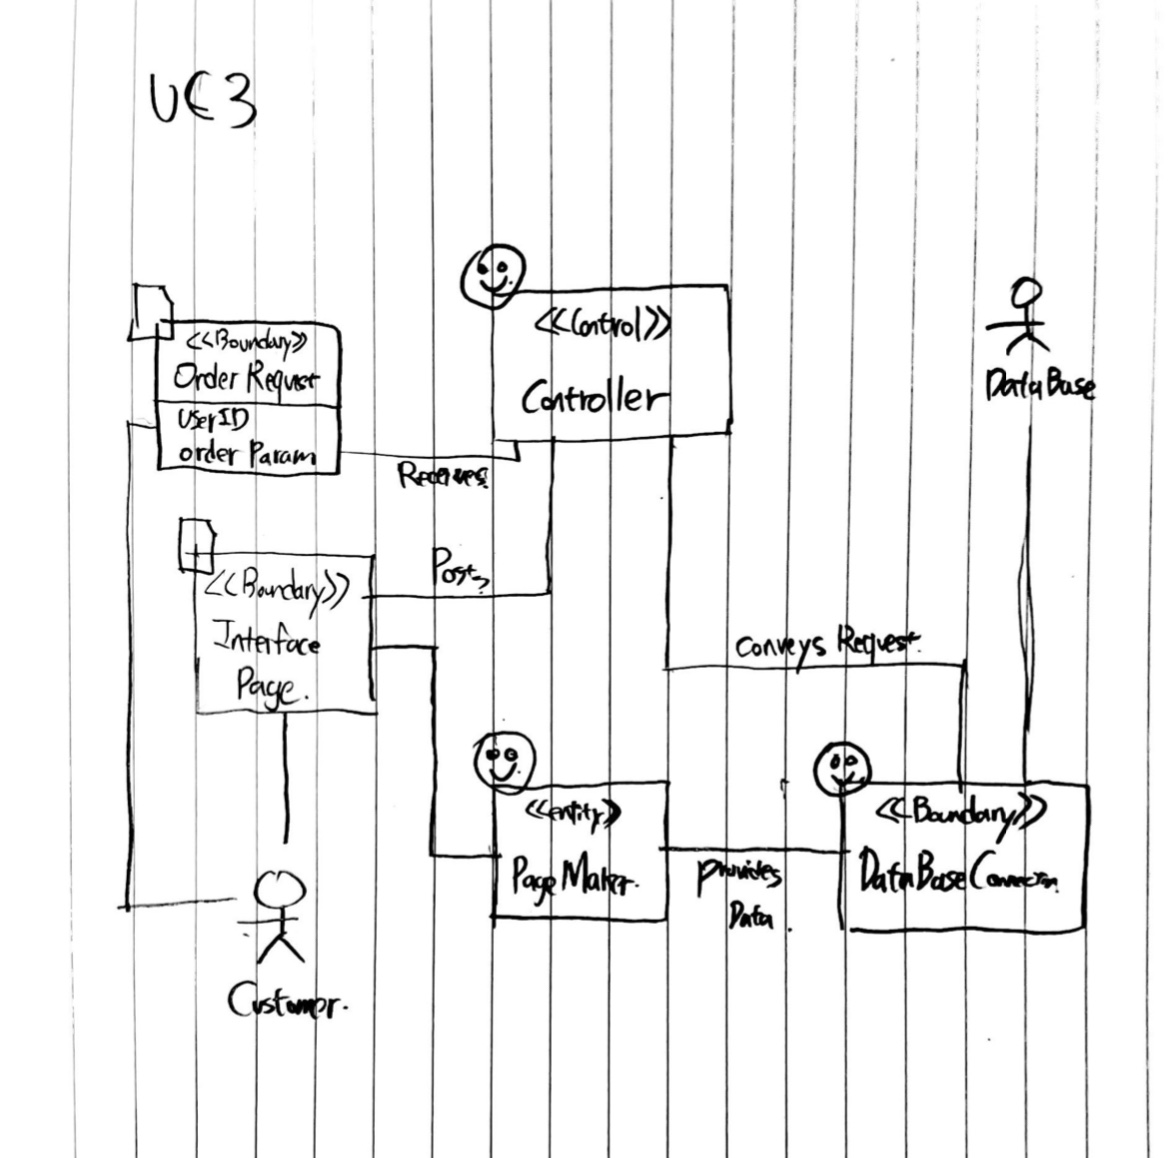 UC3
<<Boundary>>
Order Request
UserID
order Param
<<Control>>
Controller
DataBase
Receives
Posts
<<Boundary>>
Interface
Page.
Conveys Request.
<<entity>>
Page Maker.
provides
Data.
<<Boundary>>
DataBase
Customer.